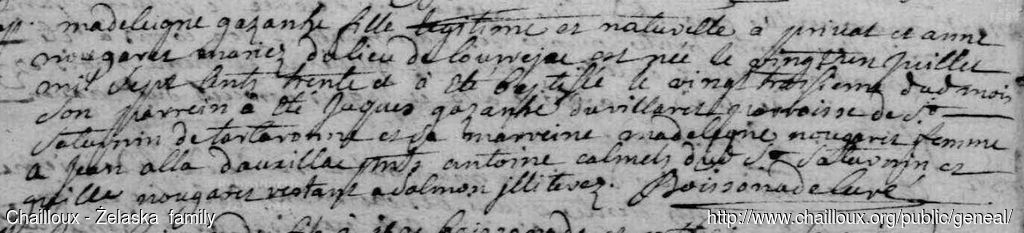 madeleigne gazanhe fille legitime et naturelle à privat et anne
nougaret mariez du lieu de louvrejac est née le vingt un juillet
mil sept cents trente et à été baptisée le vingt troisieme dud mois
son parrein à été Jaques gazanhe du villaret parroisse de St
Saturnin de tartaronne et sa marreine madeleigne nougaret femme
a Jean alla dauzillac pnts antoine calmels dud St Saturnin et
guille nougaret restant a salmon illiterez. Boissonade curé
Chailloux - Żelaska family
http://www.chailloux.org/public/geneal/